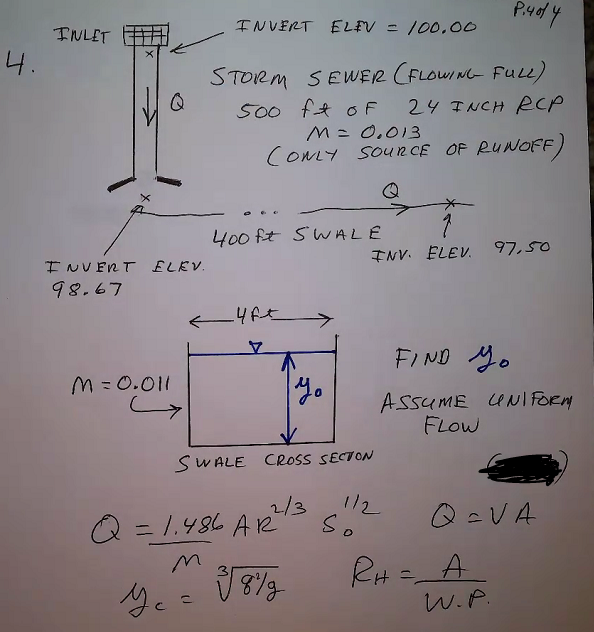 P.4 of 4
INLET
INVERT ELEV = 100.00
4.
STORM SEWER (FLOWING FULL)
Q
500 ft OF 24 INCH RCP
M = 0.013
(ONLY SOURCE OF RUNOFF)
Q
400 ft SWALE
INV. ELEV. 97.50
INVERT ELEV.
98.67
4ft
FIND yo
M = 0.011
yo
ASSUME UNIFORM
FLOW
SWALE CROSS SECTION
Q = 1.486/M A R^2/3 So^1/2
Q = VA
yc = ∛8²/g
RH = A/W.P.